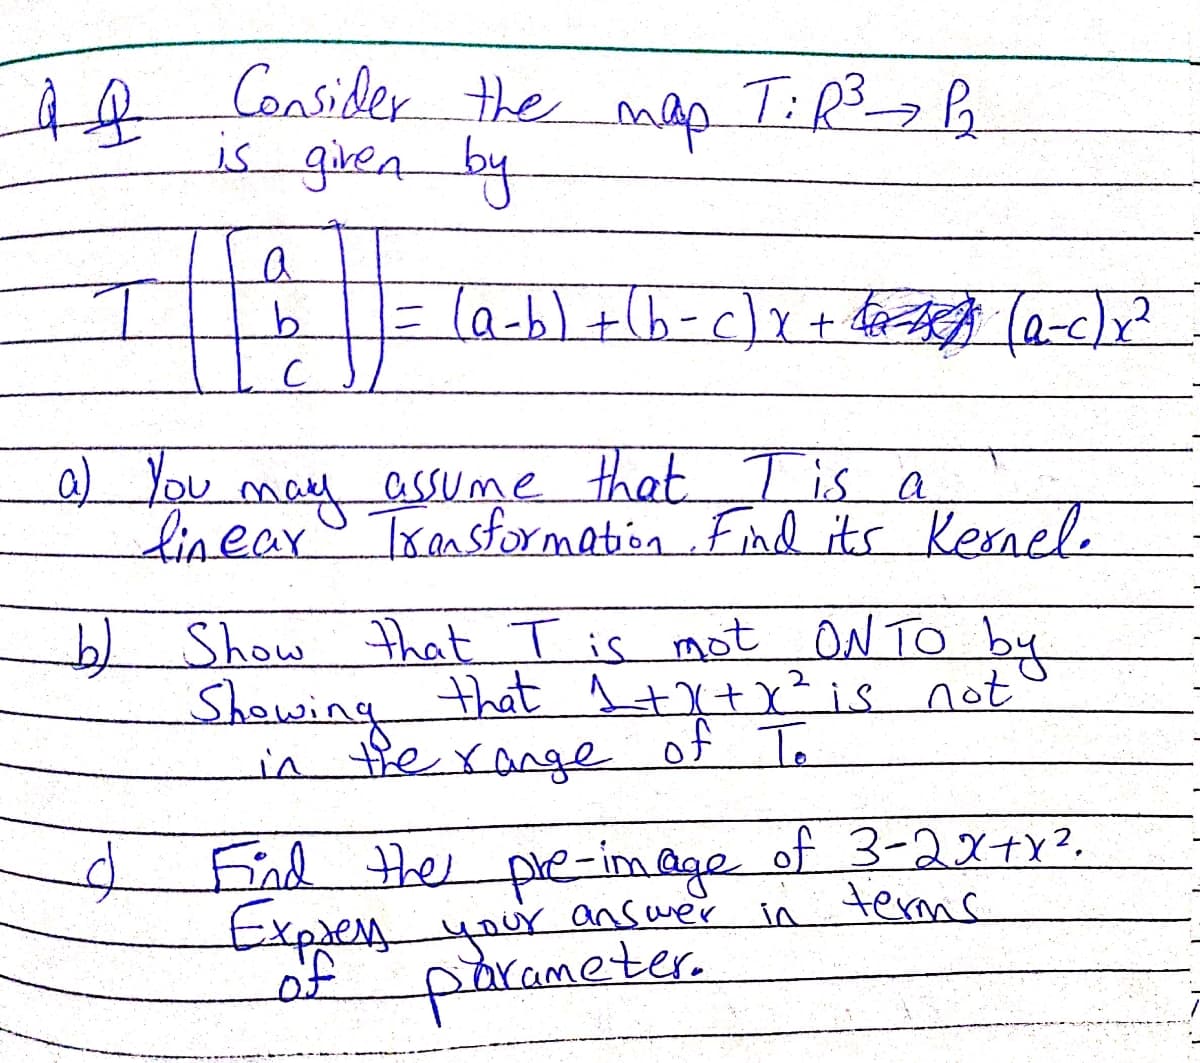 Q Consider the map T: R³ → P₂
is given by
T([a b c]) = (a-b) + (b-c)x + (a-c)x²
a) You may assume that T is a
linear Transformation. Find its Kernel.
b) Show that T is not ONTO by
Showing that 1+x+x² is not
in the range of T.
c) Find the pre-image of 3-2x+x².
Express your answer in terms
of parameter.